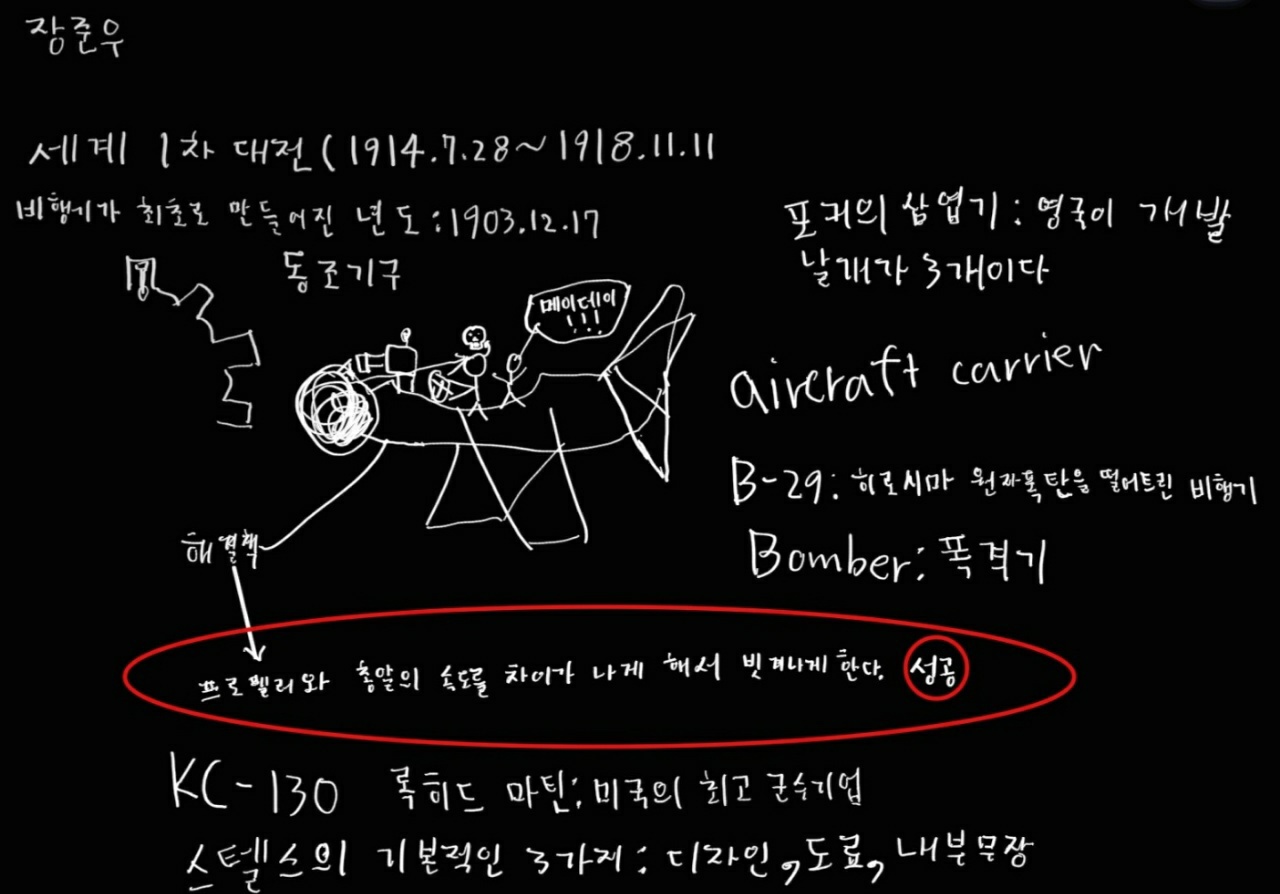 장준우
세계 1차 대전(1914.7.28~1918.11.11
비행기가 최초로 만들어진 년도:1903.12.17
동조기구
메이데이
!!!
포커의 삼엽기: 영국이 개발
날개가 3개이다
aircraft carrier
B-29: 히로시마 원자폭탄을 떨어트린 비행기
Bomber: 폭격기
해결책
프로펠러와 총알의 속도를 차이가 나게 해서 빗겨나게 한다. 성공
KC-130 록히드 마틴: 미국의 최고 군수기업
스텔스의 기본적인 3가지: 디자인, 도료, 내부무장